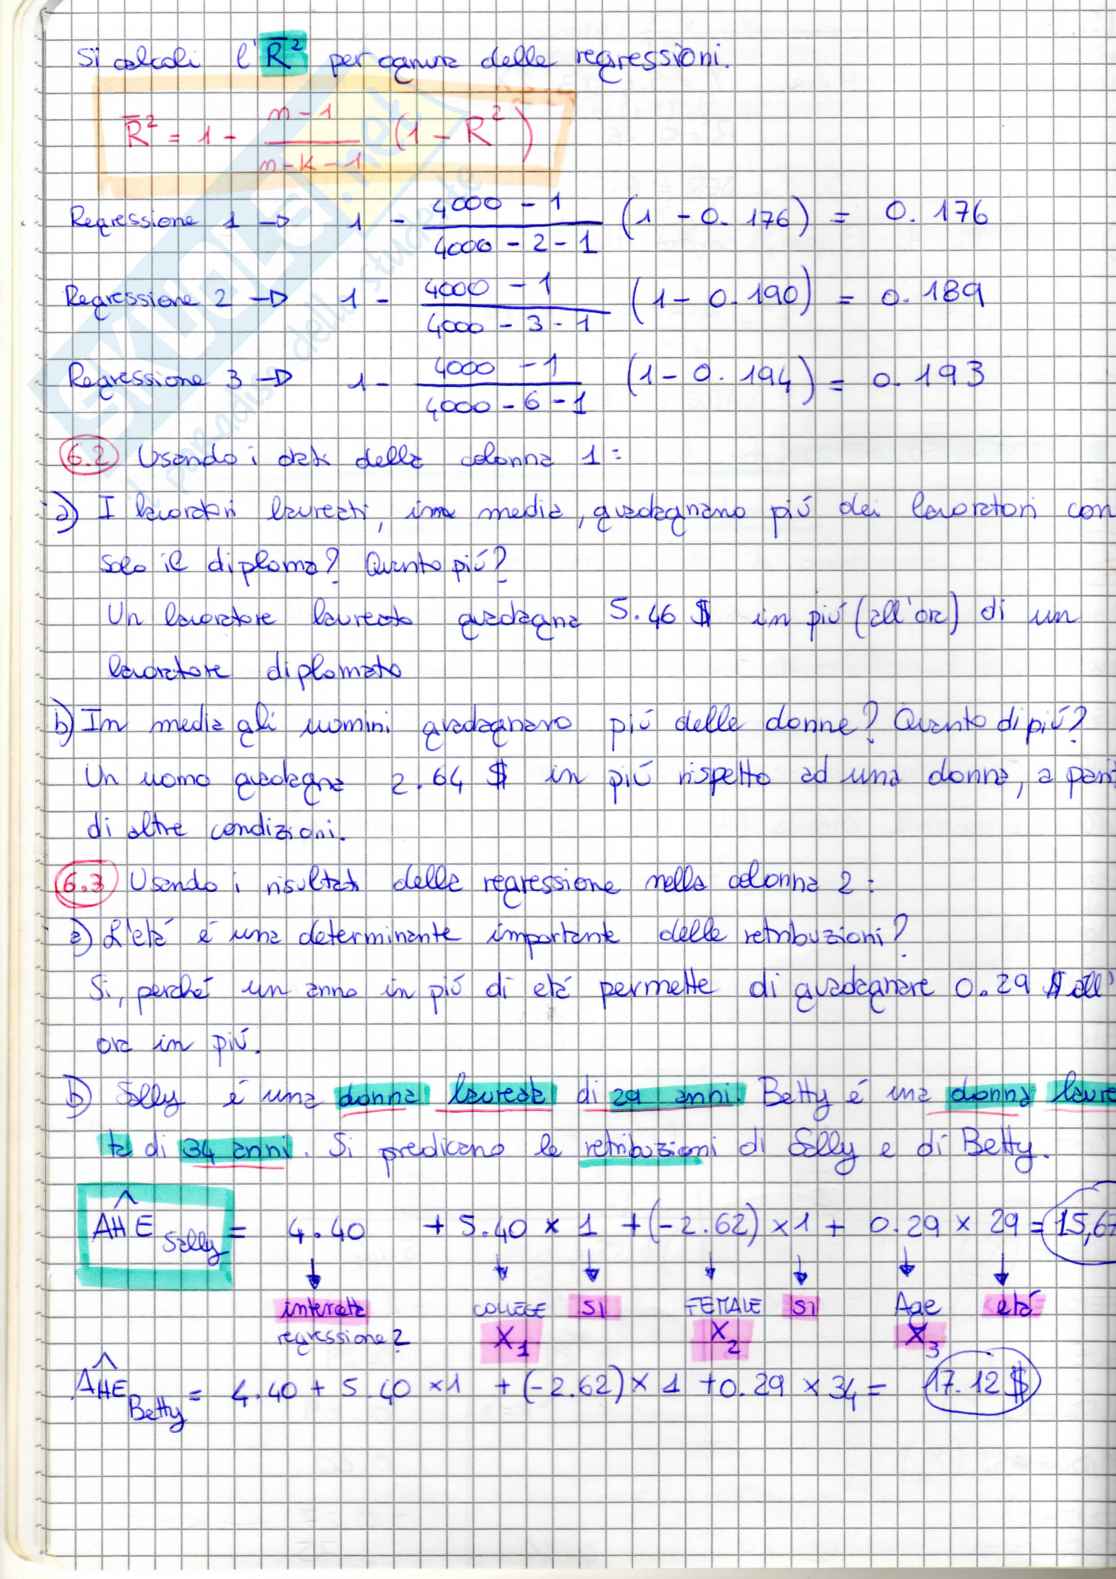 Si calcoli l'R̅² per ognuna delle regressioni.
R̅² = 1 - n-1/n-k-1 (1 - R²)
Regressione 1 → 1 - 4000 - 1/4000 - 2 - 1 (1 - 0.176) = 0.176
Regressione 2 → 1 - 4000 - 1/4000 - 3 - 1 (1 - 0.190) = 0.189
Regressione 3 → 1 - 4000 - 1/4000 - 6 - 1 (1 - 0.194) = 0.193
6.2 Usando i dati della colonna 1:
a) I lavoratori laureati, in media, guadagnano piú dei lavoratori con
solo il diploma? Quanto piú?
Un lavoratore laureato guadagna 5.46 $ in piú (all'ora) di un
lavoratore diplomato
b) In media gli uomini guadagnano piú delle donne? Quanto di piú?
Un uomo guadagna 2.64 $ in piú rispetto ad una donna, a pari
di altre condizioni.
6.3 Usando i risultati della regressione nella colonna 2:
a) L'etá é una determinante importante delle retribuzioni?
Si, perché un anno in piú di etá permette di guadagnare 0.29 $ all'
ora in piú.
b) Sally é una donna laureata di 29 anni. Betty é una donna laurea
ta di 34 anni. Si predicano le retribuzioni di Sally e di Betty.
ÂHE Sally = 4.40 + 5.40 × 1 + (-2.62) × 1 + 0.29 × 29 = 15,67
↓ ↓ ↓ ↓ ↓ ↓ ↓
intercetta COLLEGE SI FEMALE SI Age etá
regressione 2 X₁ X₂ X₃
ÂHE Betty = 4.40 + 5.40 × 1 + (-2.62) × 1 + 0.29 × 34 = 17.12 $
SKUOLA.net